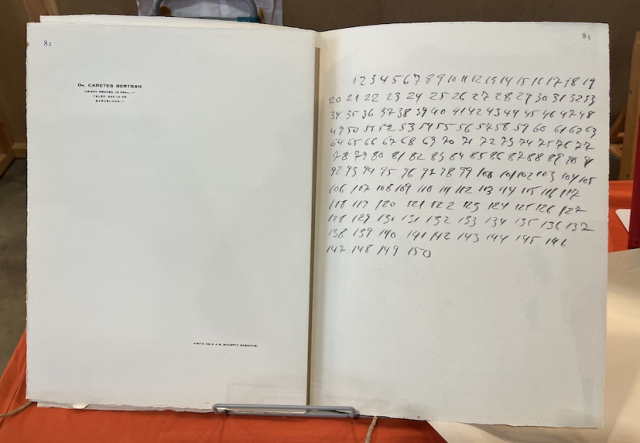 82
Dr. CARETES BERTRAN
BARCELONA
83
1 2 3 4 5 6 7 8 9 10 11 12 13 14 15 16 17 18 19
20 21 22 23 24 25 26 27 28 29 30 31 32 33
34 35 36 37 38 39 40 41 42 43 44 45 46 47 48
49 50 51 52 53 54 55 56 57 58 59 60 61 62 63
64 65 66 67 68 69 70 71 72 73 74 75 76 77
78 79 80 81 82 83 84 85 86 87 88 89 90 91
92 93 94 95 96 97 98 99 100 101 102 103 104 105
106 107 108 109 110 111 112 113 114 115 116 117
118 119 120 121 122 123 124 125 126 127
128 129 130 131 132 133 134 135 136 137
138 139 140 141 142 143 144 145 146
147 148 149 150